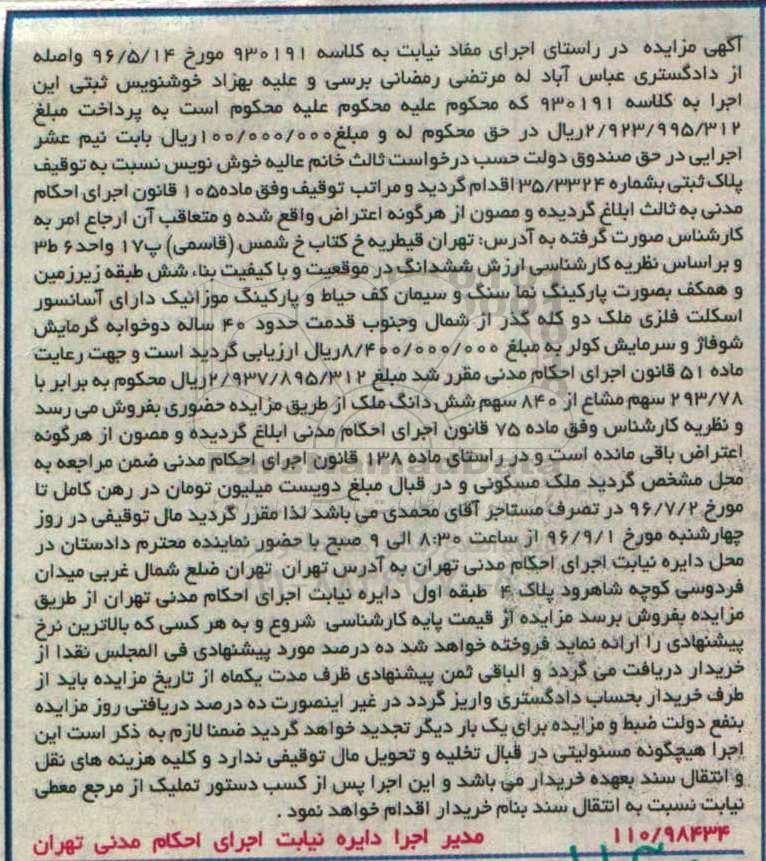 آگهی مزایده در راستای اجرای مفاد نیابت به کلاسه ۹۳۰۱۹۱ مورخ ۹۶/۵/۱۴ واصله
از دادگستری عباس آباد له مرتضی رمضانی برسی و علیه بهزاد خوشنویس ثبتی این
اجرا به کلاسه ۹۳۰۱۹۱ که محکوم علیه محکوم علیه محکوم است به پرداخت مبلغ
۲/۹۲۳/۹۹۵/۳۱۲ریال در حق محکوم له و مبلغ۱۰۰/۰۰۰/۰۰۰ریال بابت نیم عشر
اجرایی در حق صندوق دولت حسب درخواست ثالث خانم عالیه خوش نویس نسبت به توقیف
پلاک ثبتی بشماره ۳۵/۳۳۲۴ اقدام گردید و مراتب توقیف وفق ماده۱۰۵ قانون اجرای احکام
مدنی به ثالث ابلاغ گردیده و مصون از هرگونه اعتراض واقع شده و متعاقب آن ارجاع امر به
کارشناس صورت گرفته به آدرس: تهران قیطریه خ کتاب خ شمس (قاسمی) پ۱۷ واحد۶ ط۳
و براساس نظریه کارشناسی ارزش ششدانگ در موقعیت و با کیفیت بنا، شش طبقه زیرزمین
و همکف بصورت پارکینگ نما سنگ و سیمان کف حیاط و پارکینگ موزائیک دارای آسانسور
اسکلت فلزی ملک دو کله گذر از شمال وجنوب قدمت حدود ۴۰ ساله دوخوابه گرمایش
شوفاژ و سرمایش کولر به مبلغ ۸/۴۰۰/۰۰۰/۰۰۰ریال ارزیابی گردید است و جهت رعایت
ماده ۵۱ قانون اجرای احکام مدنی مقرر شد مبلغ ۲/۹۳۷/۸۹۵/۳۱۲ریال محکوم به برابر با
۲۹۳/۷۸ سهم مشاع از ۸۴۰ سهم شش دانگ ملک از طریق مزایده حضوری بفروش می رسد
و نظریه کارشناس وفق ماده ۷۵ قانون اجرای احکام مدنی ابلاغ گردیده و مصون از هرگونه
اعتراض باقی مانده است و در راستای ماده ۱۳۸ قانون اجرای احکام مدنی ضمن مراجعه به
محل مشخص گردید ملک مسکونی و در قبال مبلغ دویست میلیون تومان در رهن کامل تا
مورخ ۹۶/۷/۲ در تصرف مستاجر آقای محمدی می باشد لذا مقرر گردید مال توقیفی در روز
چهارشنبه مورخ ۹۶/۹/۱ از ساعت ۸:۳۰ الی ۹ صبح با حضور نماینده محترم دادستان در
محل دایره نیابت اجرای احکام مدنی تهران به آدرس تهران تهران ضلع شمال غربی میدان
فردوسی کوچه شاهرود پلاک ۴ طبقه اول دایره نیابت اجرای احکام مدنی تهران از طریق
مزایده بفروش برسد مزایده از قیمت پایه کارشناسی شروع و به هر کسی که بالاترین نرخ
پیشنهادی را ارائه نماید فروخته خواهد شد ده درصد مورد پیشنهادی فی المجلس نقدا از
خریدار دریافت می گردد و الباقی ثمن پیشنهادی ظرف مدت یکماه از تاریخ مزایده باید از
طرف خریدار بحساب دادگستری واریز گردد در غیر اینصورت ده درصد دریافتی روز مزایده
بنفع دولت ضبط و مزایده برای یک بار دیگر تجدید خواهد گردید ضمنا لازم به ذکر است این
اجرا هیچگونه مسئولیتی در قبال تخلیه و تحویل مال توقیفی ندارد و کلیه هزینه های نقل
و انتقال سند بعهده خریدار می باشد و این اجرا پس از کسب دستور تملیک از مرجع معطی
نیابت نسبت به انتقال سند بنام خریدار اقدام خواهد نمود .
۱۱۰/۹۸۴۳۴ مدیر اجرا دایره نیابت اجرای احکام مدنی تهران